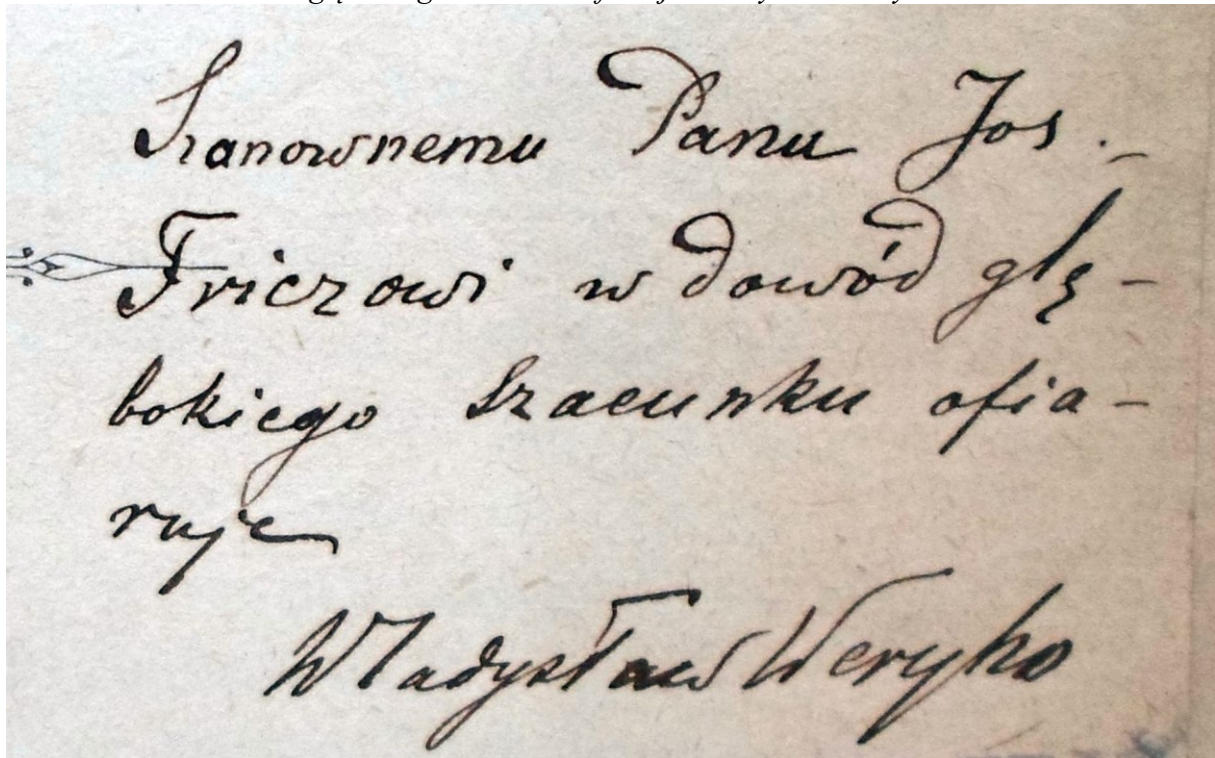 Szanownemu Panu Jos. –
Friczowi w dowód głę –
bokiego szacunku ofia –
ruje
Władysław Weryho